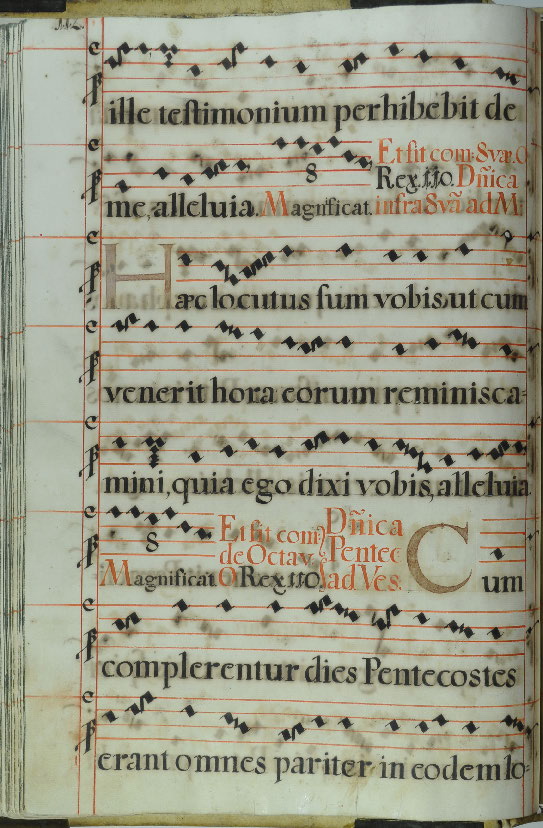 112.
ille testimonium perhibebit de
Et sit com: 8væ. O
Rex. 110. Dñica
me, alleluia. Magnificat. infra 8vã ad M
8
Hæc locutus sum vobis, ut cum
venerit hora eorum reminisca-
mini, quia ego dixi vobis, alleluia
8
Et fit com
de Octav.
Magnificat O Rex 110.
Dñica
Pentec
ad Ves.
Cum
complerentur dies Pentecostes
erant omnes pariter in eodem lo-